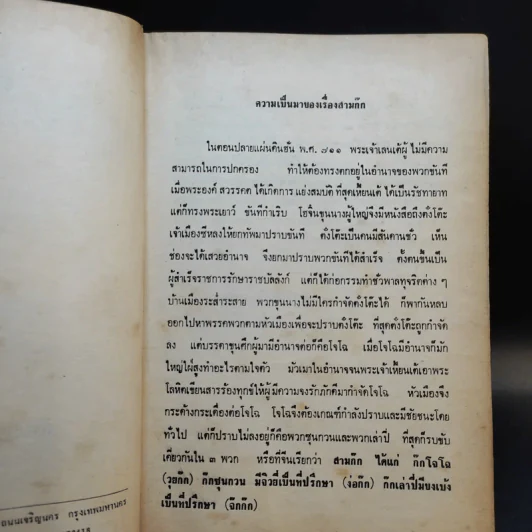 ความเป็นมาของเรื่องสามก๊ก
ในตอนปลายแผ่นดินฮั่น พ.ศ. ๗๑๑ พระเจ้าเลนเต้ผู้ ไม่มีความ
สามารถในการปกครอง ทำให้ต้องทรงตกอยู่ในอำนาจของพวกขันที
เมื่อพระองค์ สวรรคต ได้เกิดการ แย่งสมบัติ ที่สุดเหี้ยนเต้ ได้เป็นรัชทายาท
แต่ก็ทรงพระเยาว์ ขันทีกำเริบ โฮจิ๋นขุนนางผู้ใหญ่จึงมีหนังสือถึงตั๋งโต๊ะ
เจ้าเมืองซีหลงให้ยกทัพมาปราบขันที ตั๋งโต๊ะเป็นคนมีสันดานชั่ว เห็น
ช่องจะได้เสวยอำนาจ จึงยกมาปราบพวกขันทีได้สำเร็จ ตั้งตนขึ้นเป็น
ผู้สำเร็จราชการรักษาราชบัลลังก์ แต่ก็ได้ก่อกรรมทำชั่วพาลทุจริตต่าง ๆ
บ้านเมืองระส่ำระสาย พวกขุนนางไม่มีใครกำจัดตั๋งโต๊ะได้ ก็พากันหลบ
ออกไปหาพรรคพวกตามหัวเมืองเพื่อจะปราบตั๋งโต๊ะ ที่สุดตั๋งโต๊ะถูกกำจัด
ลง แต่บรรดาขุนศึกผู้มามีอำนาจต่อก็คือโจโฉ เมื่อโจโฉมีอำนาจก็มัก
ใหญ่ใฝ่สูงทำอะไรตามใจตัว มัวเมาในอำนาจจนพระเจ้าเหี้ยนเต้เอาพระ
โลหิตเขียนสารร้องทุกข์ให้ผู้มีความจงรักภักดีมากำจัดโจโฉ หัวเมืองจึง
กระด้างกระเดื่องต่อโจโฉ โจโฉจึงต้องเกณฑ์กำลังปราบและมีชัยชนะโดย
ทั่วไป แต่ก็ปราบไม่ลงอยู่ก็คือพวกซุนกวนและพวกเล่าปี่ ที่สุดก็รบขับ
เคี่ยวกันใน ๓ พวก หรือที่จีนเรียกว่า สามก๊ก ได้แก่ ก๊กโจโฉ
(วุยก๊ก) ก๊กซุนกวน มีจิวยี่เป็นที่ปรึกษา (ง่อก๊ก) ก๊กเล่าปี่มีขงเบ้ง
เป็นที่ปรึกษา (จ๊กก๊ก)
ถนนเจริญนคร กรุงเทพมหานคร